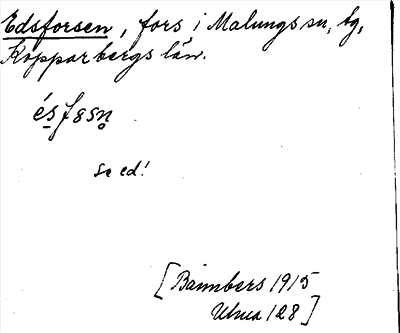 Edsforsen, fors i Malungs sn, tg,
Kopparbergs län.
ésfosn̥
se ed!
[Bannbers 1915
Utmea 128]